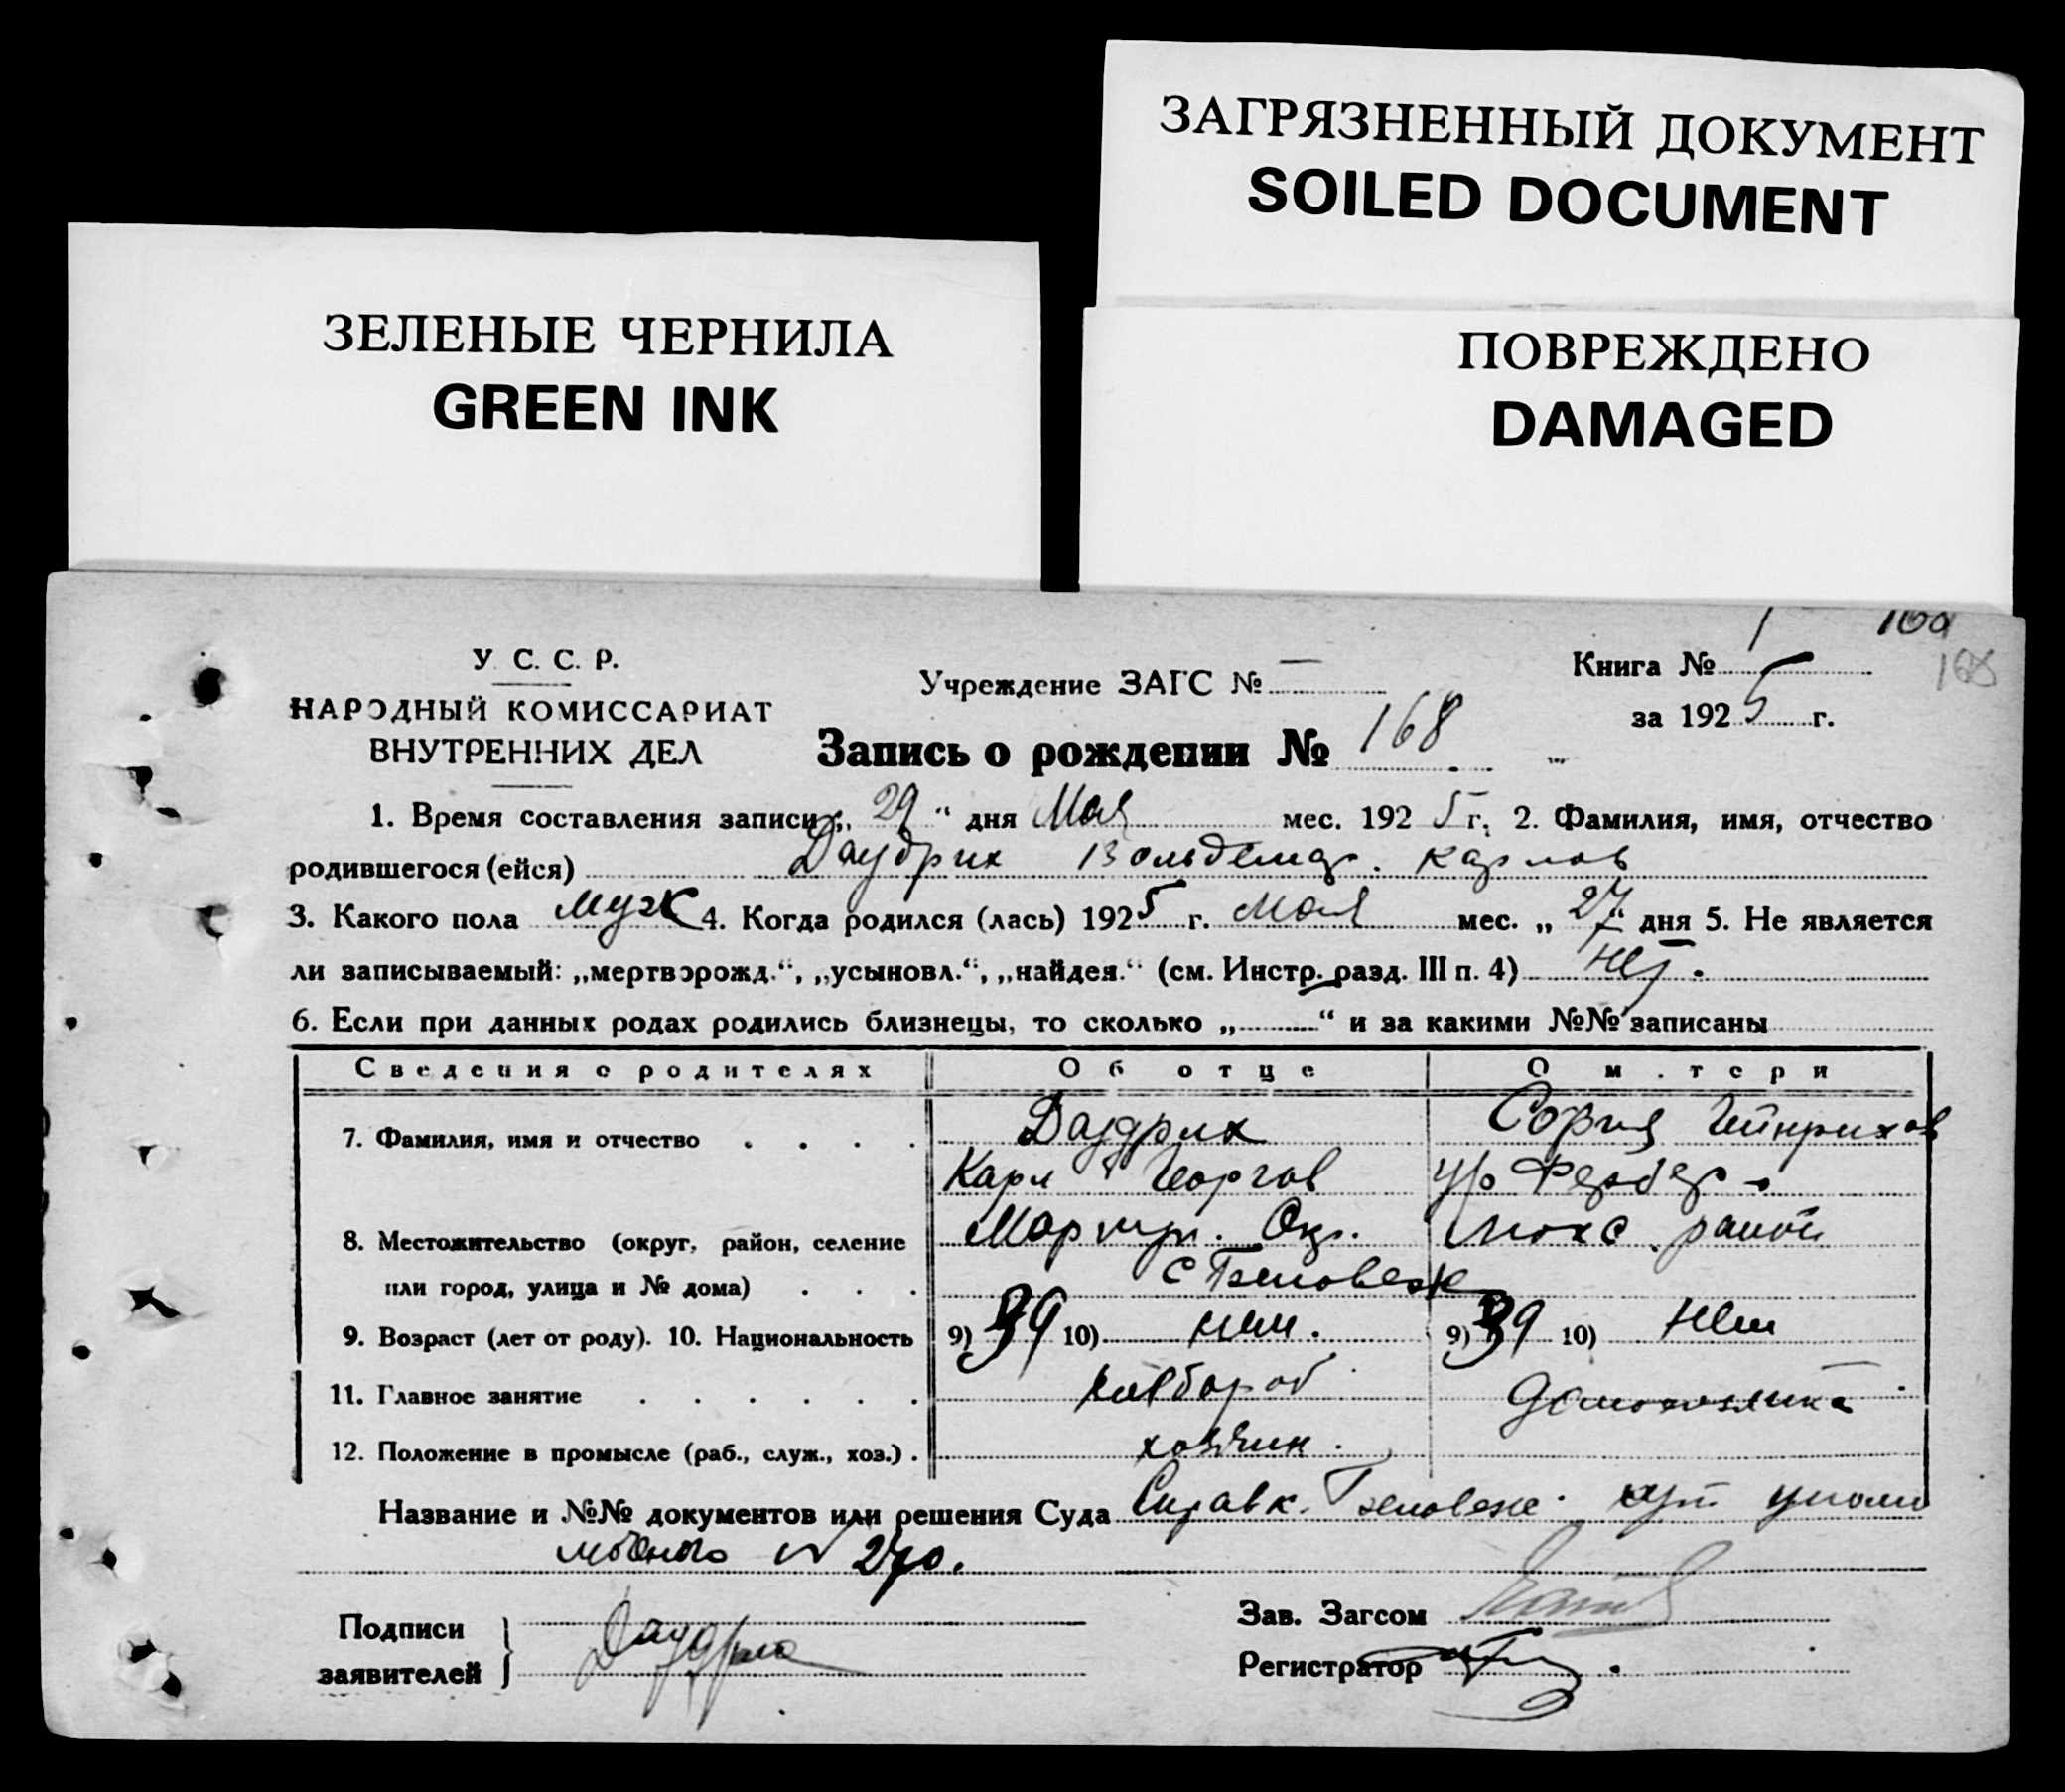 ЗАГРЯЗНЕННЫЙ ДОКУМЕНТ
SOILED DOCUMENT
ЗЕЛЕНЫЕ ЧЕРНИЛА
GREEN INK
ПОВРЕЖДЕНО
DAMAGED
168
У. С. С. Р.
НАРОДНЫЙ КОМИССАРИАТ
ВНУТРЕННИХ ДЕЛ
Учреждение ЗАГС № —
Книга № 1
за 1925 г.
Запись о рождении № 168
1. Время составления записи „ 29 “ дня Мая мес. 1925 г. 2. Фамилия, имя, отчество
родившегося (ейся) Даудрих Вольдемар. Карлов
3. Какого пола муж 4. Когда родился (лась) 1925 г. мая мес. „ 27 “ дня 5. Не является
ли записываемый: „мертворожд.“, „усыновл.“, „найден.“ (см. Инстр. разд. III п. 4) нет.
6. Если при данных родах родились близнецы, то сколько „ “ и за какими №№ записаны
Сведения о родителях Об отце О матери
7. Фамилия, имя и отчество Даудрих София Гейнрихов
Карл Георгов у/р Фербер
8. Местожительство (округ, район, селение Мариуп. Окр. Люкс. район
или город, улица и № дома) с
9. Возраст (лет от роду). 10. Национальность 9) 39 10) нем. 9) 39 10) нем
11. Главное занятие хлебороб домохозяйка
12. Положение в промысле (раб., служ., хоз.) хозяин.
Название и №№ документов или решения Суда Справк. уполно
мочного № 270.
Подписи
заявителей Даудрих
Зав. Загсом
Регистратор